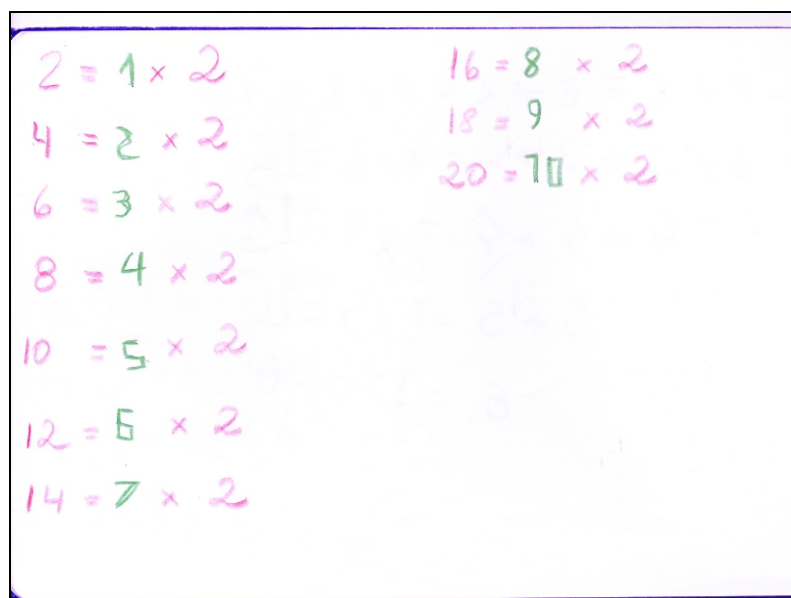 2 = 1 × 2
4 = 2 × 2
6 = 3 × 2
8 = 4 × 2
10 = 5 × 2
12 = 6 × 2
14 = 7 × 2
16 = 8 × 2
18 = 9 × 2
20 = 10 × 2